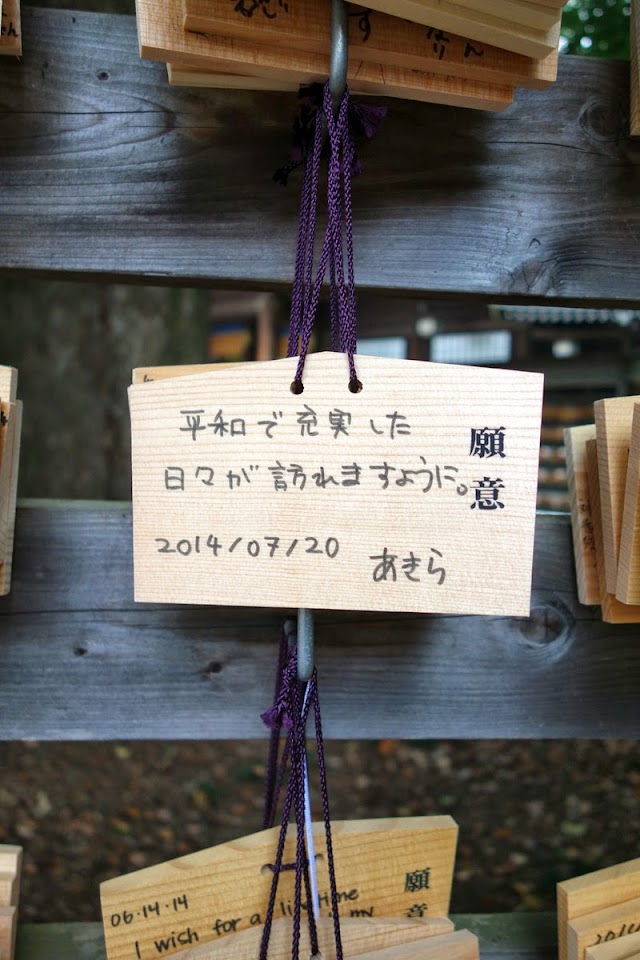 平和で充実した
日々が訪れますように。
願意
2014/07/20
あきら
06.14.14
願意
I wish for a
my
2014